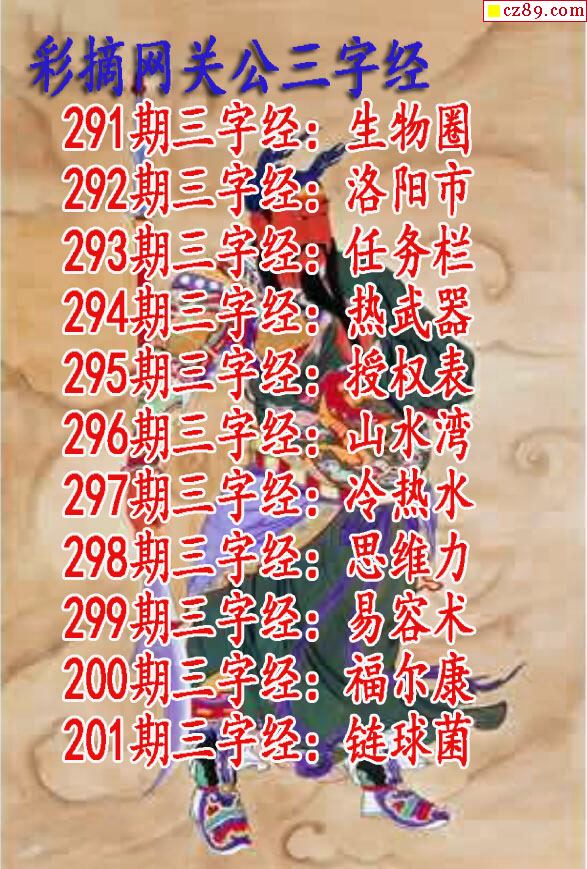 cz89.com
彩摘网关公三字经
291期三字经：生物圈
292期三字经：洛阳市
293期三字经：任务栏
294期三字经：热武器
295期三字经：授权表
296期三字经：山水湾
297期三字经：冷热水
298期三字经：思维力
299期三字经：易容术
200期三字经：福尔康
201期三字经：链球菌